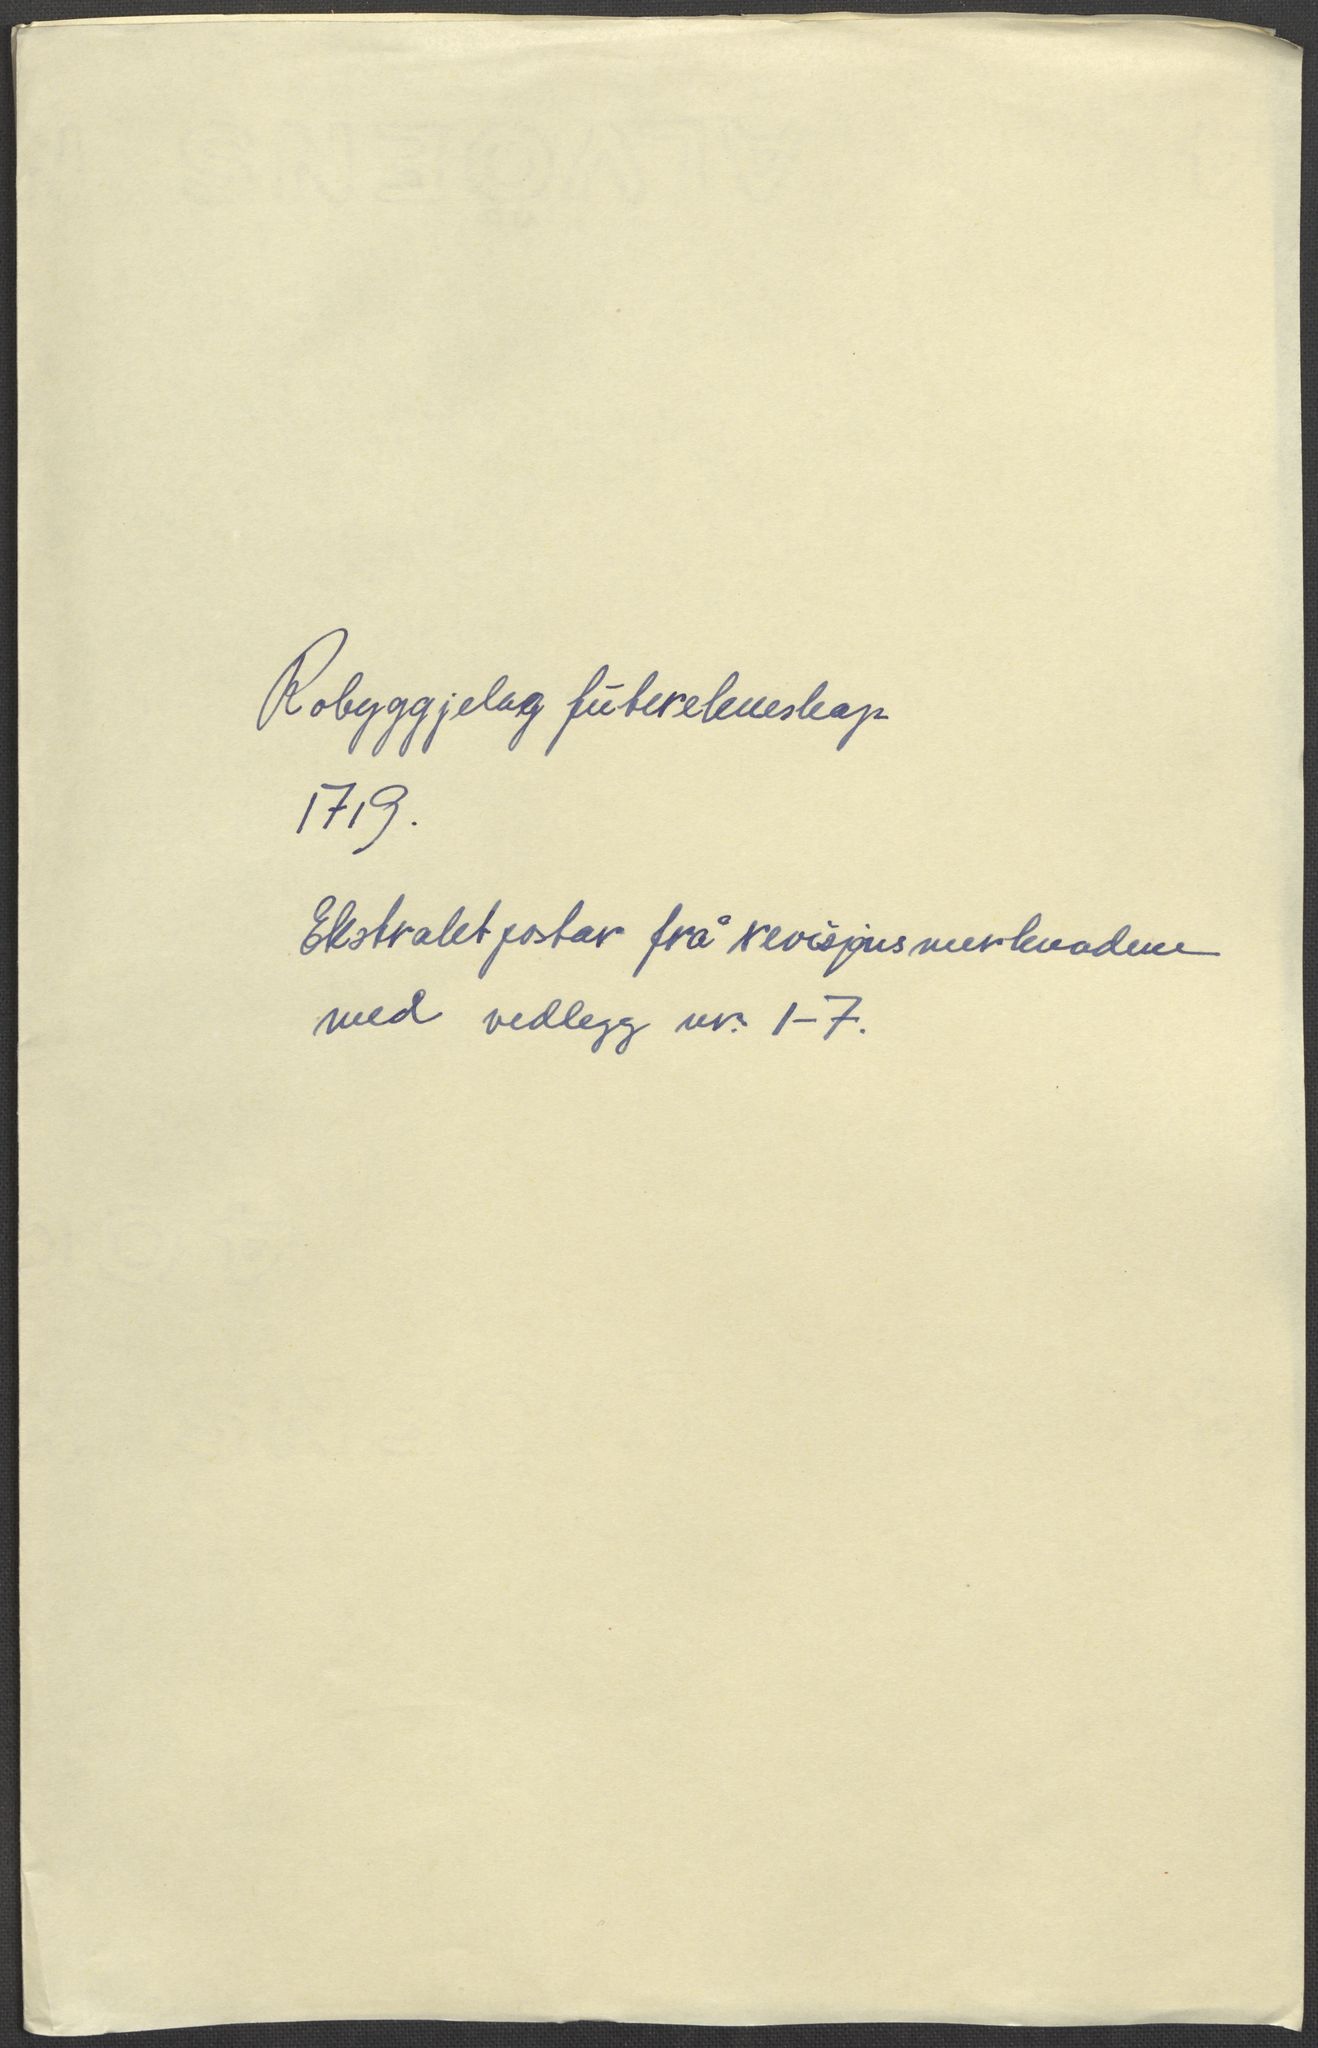 Robyggjelag futerekneskap
1719.
Ekstraktpostar frå revisjonsmerknadene
med vedlegg nr. 1-7.